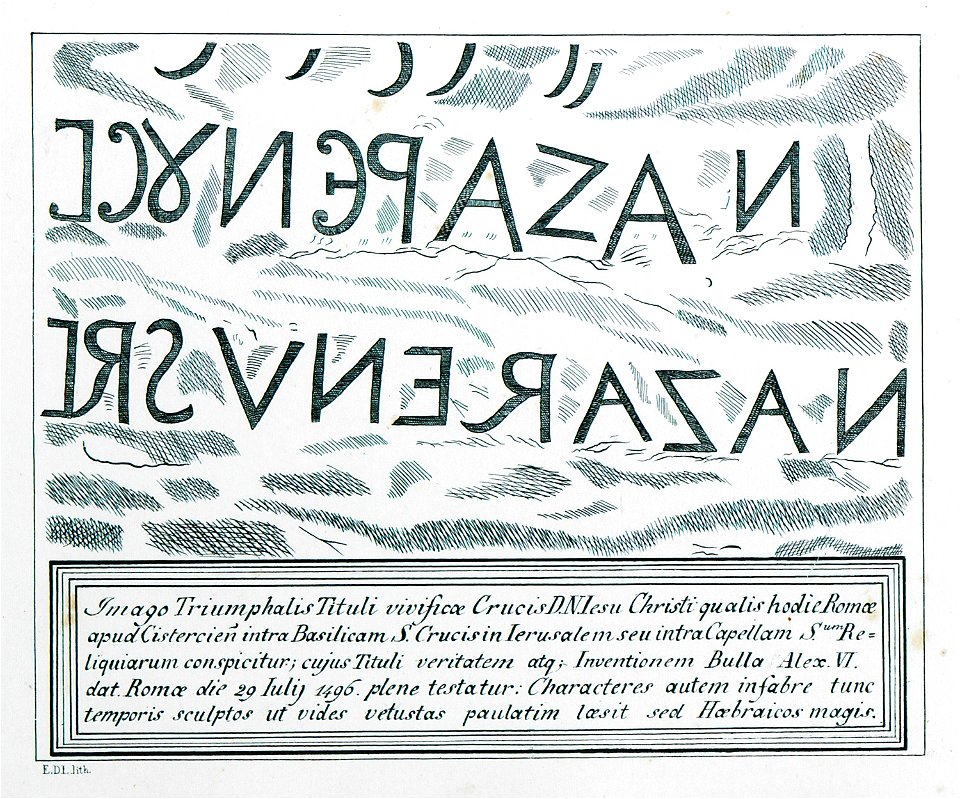 NAZAPЄNȢC B
NAZARENVS RE
Imago Triumphalis Tituli vivificæ Crucis D.N. Iesu Christi qualis hodie Romæ
apud Cistercieñ intra Basilicam S. Crucis in Ierusalem seu intra Capellam S.um Re=
liquiarum conspicitur; cujus Tituli veritatem atq; Inventionem Bulla Alex. VI.
dat. Romæ die 29 Iulij 1496. plene testatur: Characteres autem infabre tunc
temporis sculptos ut vides vetustas paulatim læsit sed Hæbraicos magis.
E.D.l. lith.